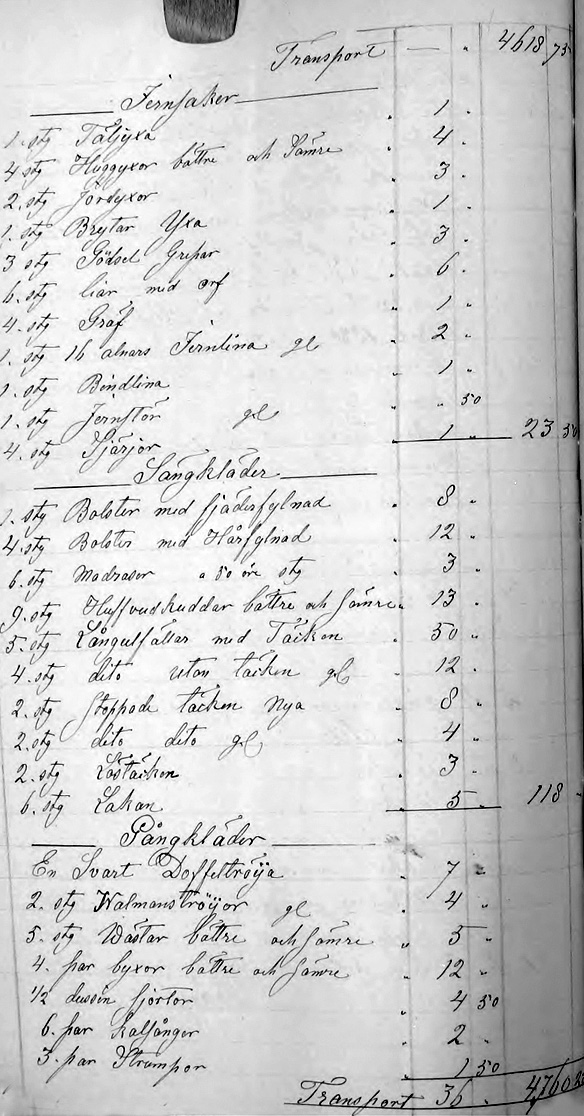 Transport — " 4618 73
Jernsaker
1. stg Täljyxa " 1 "
4 stg Huggyxor bättre och Sämre " 4 "
2. stg Jordyxor " 3 "
1. stg Brytar Yxa " 1 "
3 stg Gödsel Grepar " 3 "
6. stg liar med orf " 6 "
4. stg Gräf " 1 "
1. stg 16 alnars Jernlina gl " 2 "
1. stg Bindlina " 1 "
1. stg Jernstör gl " " 50
4. stg Tjärjor " 1 " 23 50
Sängkläder
1. stg Bolster med fjäderfylnad " 8 "
4. stg Bolster med Hårfylnad " 12 "
6. stg Madraser a 50 öre stg " 3 "
9. stg Hufvudkuddar bättre och sämre " 13 "
5. stg Långulfällar med Täcken " 50 "
4. stg dito utan täcken gl " 12 "
2. stg stoppade täcken nya " 8 "
2. stg dito dito gl " 4 "
2. stg Löstäcken " 3 "
6. stg Lakan " 5 " 118 "
Gångkläder
En Svart Doffeltröija " 7 "
2. stg Walmanströijor gl " 4 "
5. stg Västar bättre och sämre " 5 "
4. par byxor bättre och sämre " 12 "
1/2 dussin sjortor " 4 50
6. par kalsånger " 2 "
3. par Strumpor " 1 50
Transport 36 " 4760